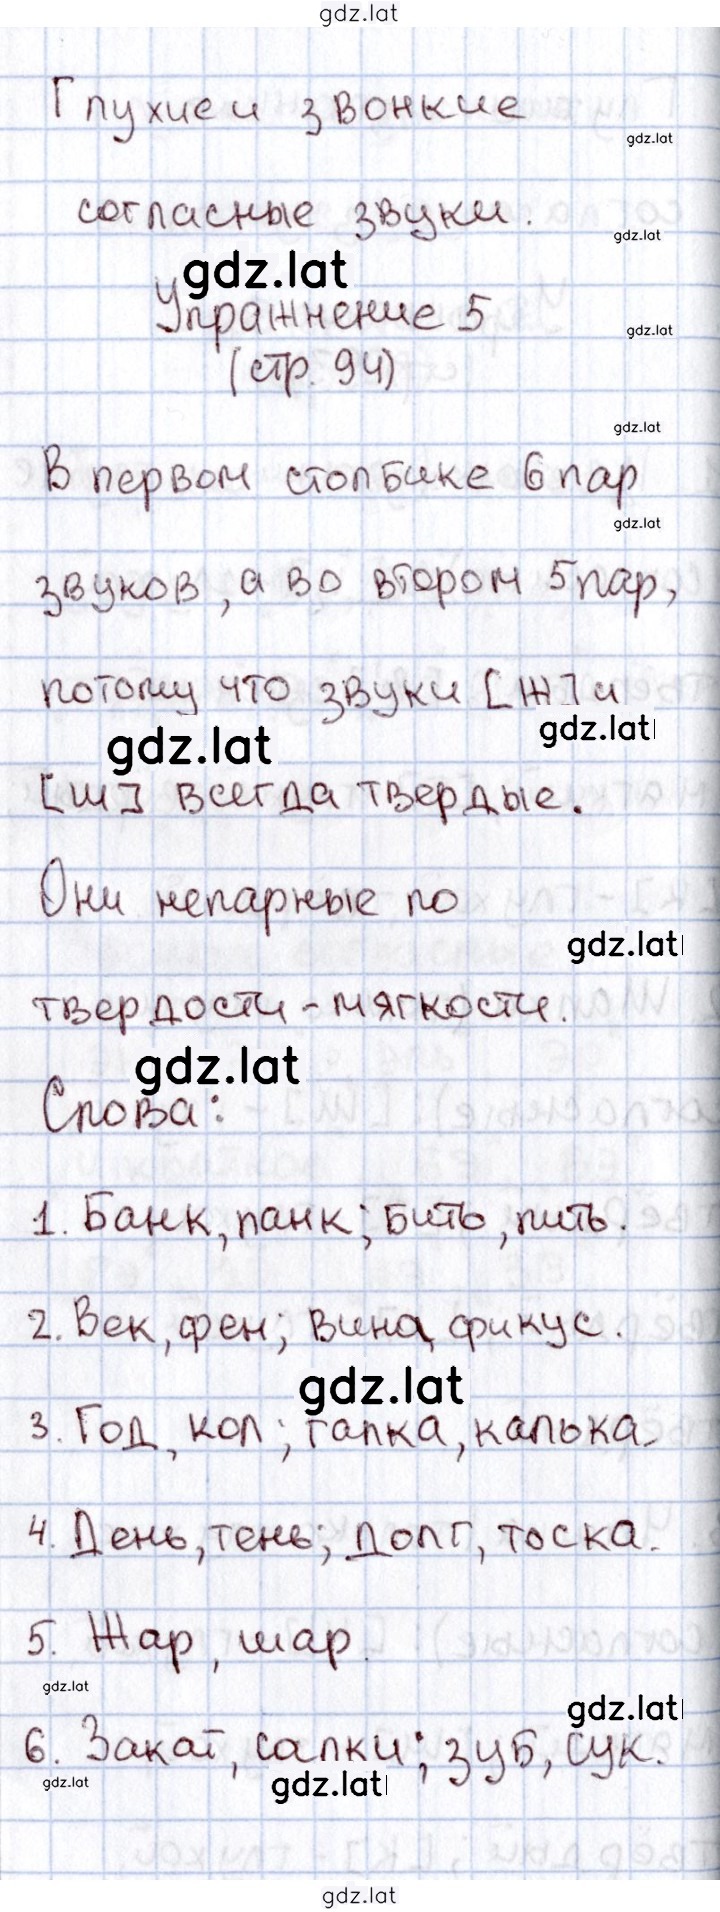 gdz.lat
Глухие и звонкие
gdz.lat
согласные звуки.
gdz.lat
gdz.lat
Упражнение 5
gdz.lat
(стр. 94)
gdz.lat
В первом столбике 6 пар
gdz.lat
звуков, а во втором 5 пар,
потому что звуки [ж] и
gdz.lat
gdz.lat
[ш] всегда твердые.
Они непарные по
gdz.lat
твердости-мягкости.
gdz.lat
Слова:
1. Банк, панк; бить, пить.
2. Век, фен; вина, фикус.
gdz.lat
3. Год, кол; галка, калька.
4. День, тень; долг, тоска.
5. Жар, шар.
gdz.lat
gdz.lat
6. Закат, салки; зуб, сук.
gdz.lat
gdz.lat
gdz.lat